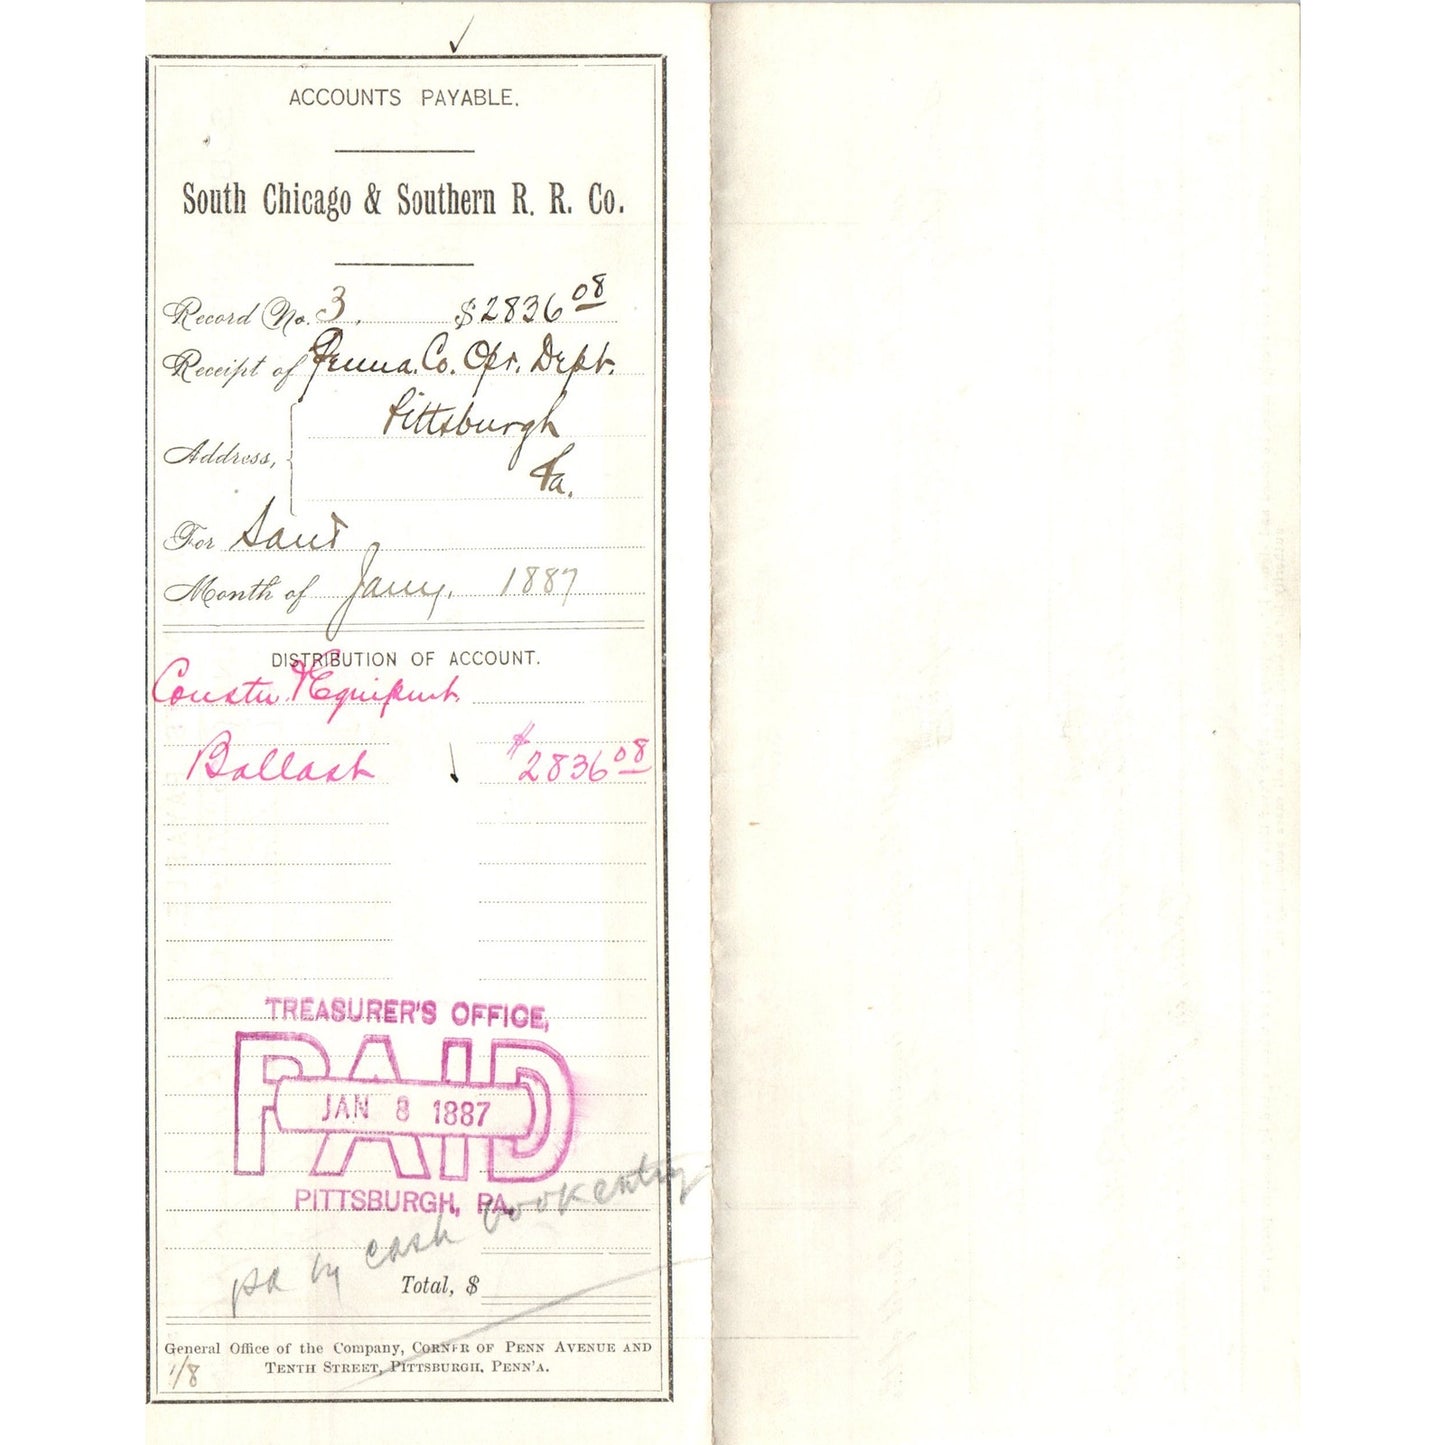 ACCOUNTS PAYABLE.
South Chicago & Southern R. R. Co.
Record No. 3. $2836 08
Receipt of Penna. Co. Opr. Dept.
Pittsburgh
Address,
Pa.
For Sand
Month of Jany. 1887
DISTRIBUTION OF ACCOUNT.
Constn. & Equipmt.
Ballast $2836 08
TREASURER'S OFFICE,
PAID
JAN 8 1887
PITTSBURGH, PA.
pd by cash book entry
Total, $
General Office of the Company, CORNER OF PENN AVENUE AND
TENTH STREET, PITTSBURGH, PENN'A.
1/8